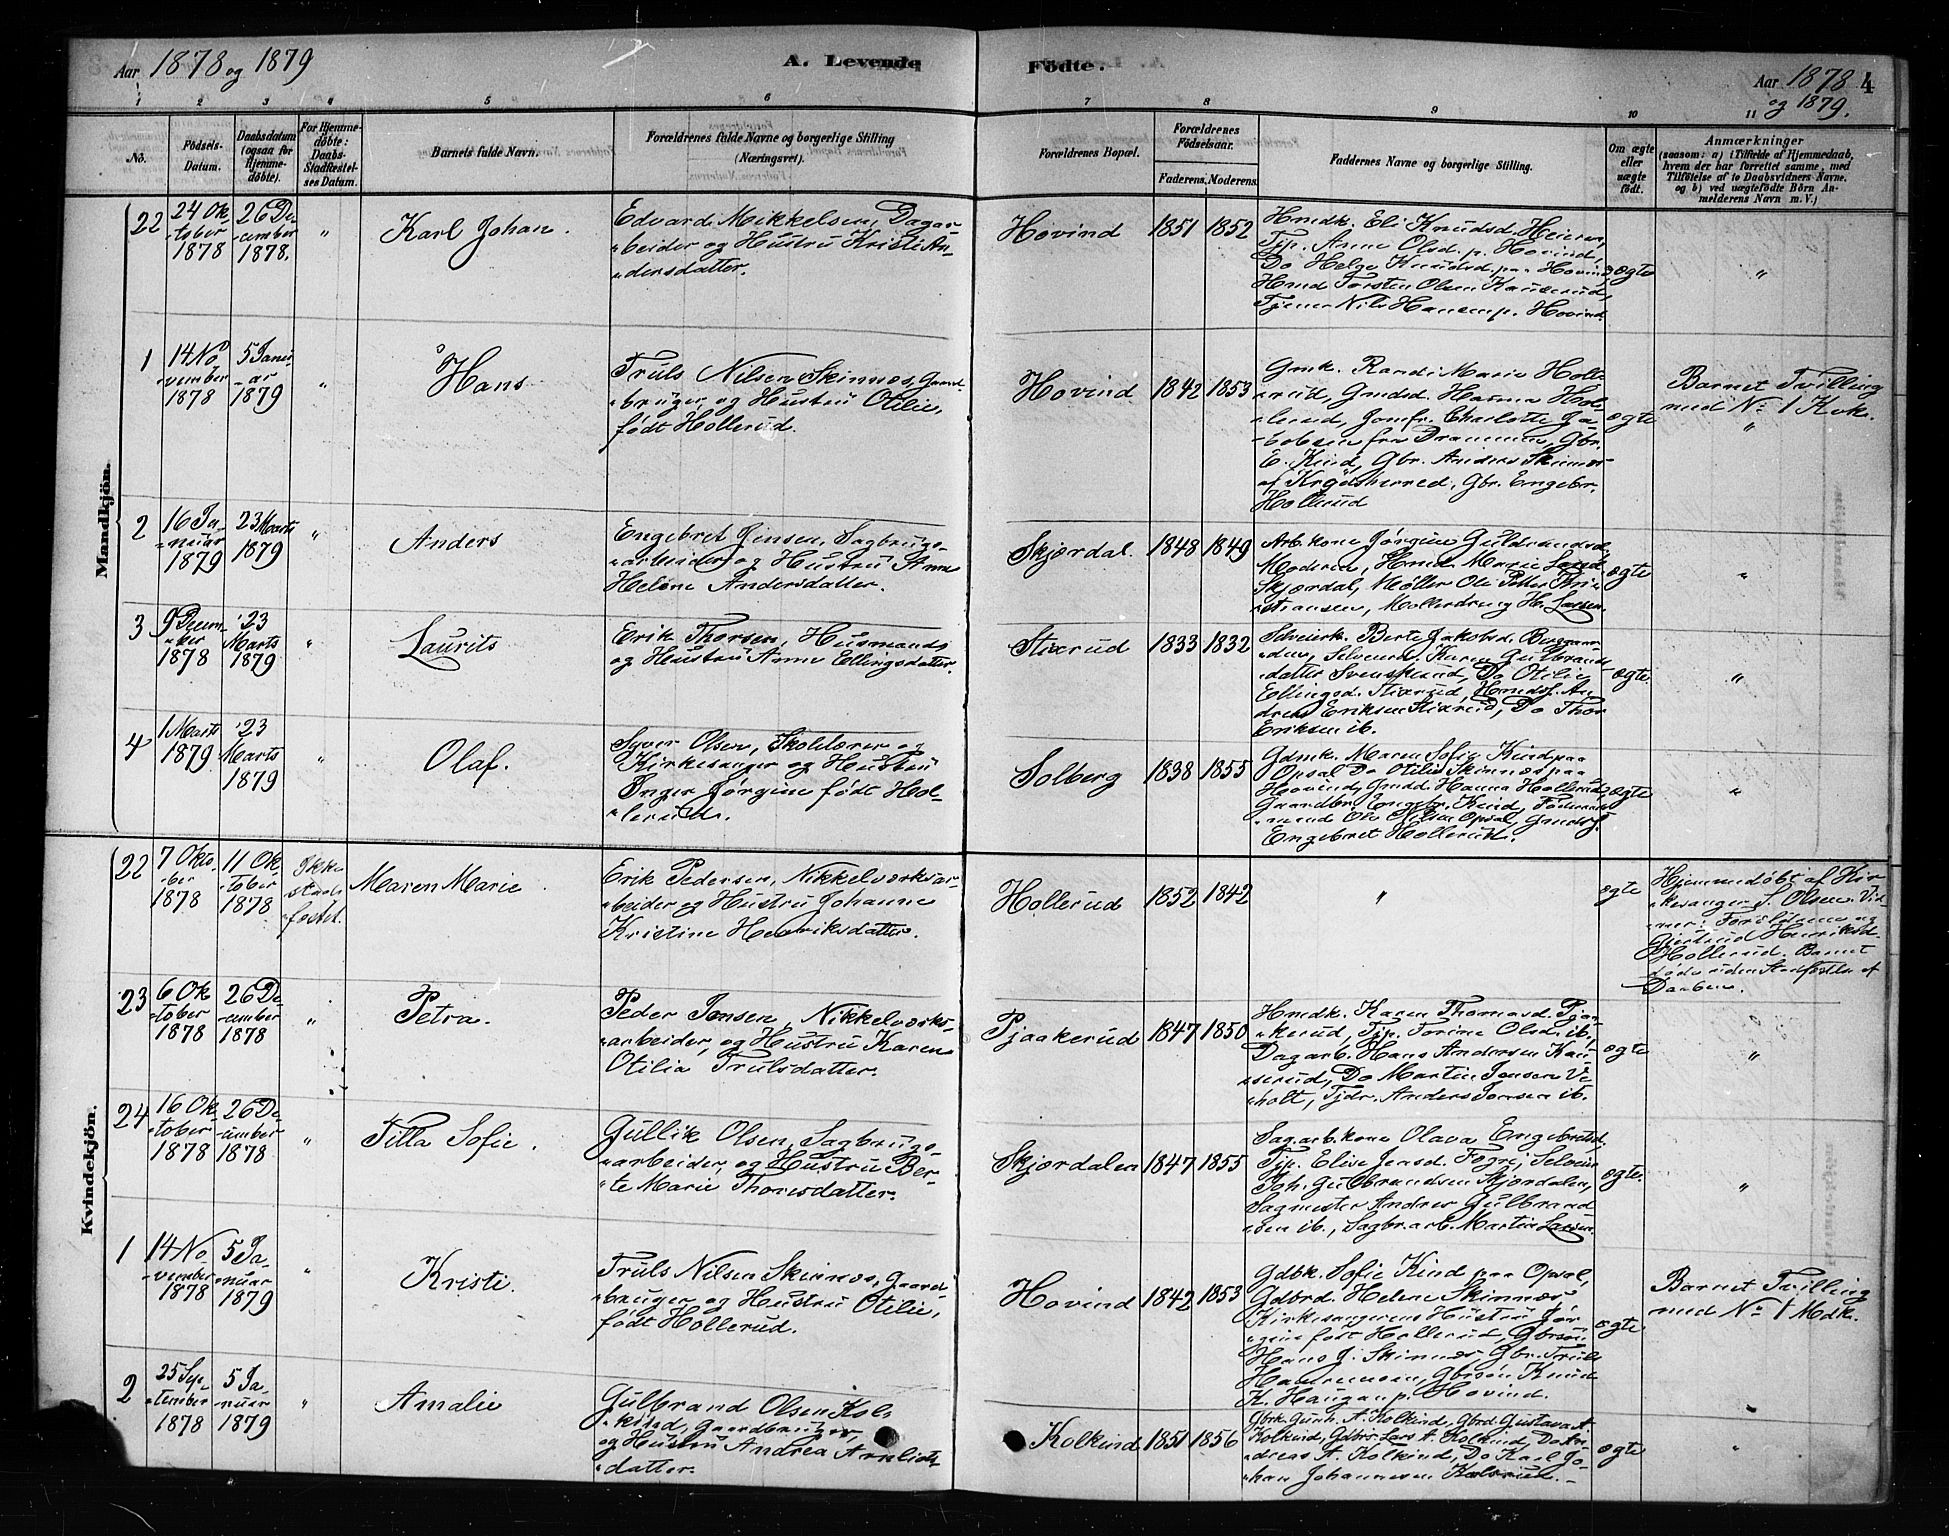 Aar 1878 og 1879
A. Levende Fødte.
Aar 1878 og 1879.
4
1 2 3 4 5 6 7 8 9 10 11
No.
Fødsels-Datum.
Daabsdatum (ogsaa for Hjemmedøbte).
For Hjemmedøbte: Daabs-Stadfæstelses Datum.
Barnets fulde Navn.
Forældrenes fulde Navne og borgerlige Stilling (Næringsvei).
Forældrenes Bopæl.
Forældrenes Fødselsaar.
Faderens. Moderens.
Faddernes Navne og borgerlige Stilling.
Om ægte eller uægte født.
Anmærkninger
(saasom: a) i Tilfælde af Hjemmedaab, hvem der har forrettet samme, med Tilføielse af to Daabsvidners Navne, og b) ved uægtefødte Børn Anmelderens Navn m. V.)
Mandkjøn.
22
24 Ok-
-tober
1878
26 De-
-cember
1878.
"
Karl Johan.
Edvard Mikkelsen, Dagar-
-beider og Hustru Kristi An-
-dersdatter.
Hovind
1851
1852
Hmdk. Eli Knudsd. Heieren,
Tjp. Anne Olsd. p. Hovind,
Do Helge Knudsd. paa Hovind,
Hmd Torsten Olsen Kauserud,
Tjener Nils Hansen p. Hovind.
ægte
"
1
14 No
-vember
1878
5 Janu
-ar
1879
"
Hans
Truls Nilsen Skinnes, Gaard-
-bruger og Hustru Otilie,
født Hollerud.
Hovind
1842
1853
Gmk. Randi Marie Holle-
-rud, Gmdsd. Hanna Hol-
-lerud, Jomfr. Charlotte Ja-
-cobsen fra Drammen, Gbr.
E. Kind, Gbr. Anders Skinnes
af Krødsherred, Gbr. Engebr.
Hollerud
ægte
Barnet Tvilling
med No 1 Kvk.
"
2
16 Ja-
-nuar
1879
23 Marts
1879
"
Anders
Engebret Jensen, Sagbrugs-
-arbeider og Hustru Anne
Helene Andersdatter.
Skjærdal.
1848
1849
Arb. kone Jørgine Guldrandsd.
Moderen, Hmd. Marie
Skjærdal, Møller Ole Petter Kri-
-stiansen, Møllerdreng H. Larsen.
ægte
"
3
9 Decem-
-ber
1878
23
Marts
1879
"
Laurits
Erik Thorsen, Husmands
og Hustru Anne Ellingsdatter.
Stixrud
1833
1832
Selveierk. Berte Jakobsd.
Karen Gulbrands-
datter Svenskerud, Do Otilie
Ellingsd. Stixrud, Hmdsf. An-
dreas Eriksen Stixrud, Do Thor
Eriksen ib.
ægte.
"
4
1 Marts
1879
23
Marts
1879
"
Olaf.
Syver Olsen, Skolelærer og
Kirkesanger og Hustru
Inger Jørgine født Hol-
-lerud.
Solberg
1838
1855
Gdmk. Maren Sofie Kind paa
Opsal Do Otilie Skinnes paa
Hovind, Gmdd. Hanna Hollerud
Gaardbr. Engebr. Kind, Føderaads-
-mand Ole Nilsen Opsal, Gmdsf.
Engebret Hollerud.
ægte
"
Kvindekjøn.
22
7 Okto-
-ber
1878
11 Ok-
-tober
1878
Ikke
stad-
-fæstet.
Maren Marie
Erik Pedersen, Nikkelværksar-
-beider og Hustru Johanne
Kristine Henriksdatter.
Hollerud
1852
1842
"
ægte
Hjemmedøbt af Kir-
-kesanger S. Olsen. Vid-
-ner: Forældrene og
Gjertrud Henriksd.
Hollerud. Barnet
døde uden Stadfæstelse af
Daaben.
23
6 Ok
-tober
1878
26 De-
-cember
1878
"
Petra.
Peder Jensen, Nikkelværks-
-arbeider, og Hustru Karen
Otilia Trulsdatter.
Pjaakerud
1847
1850
Hmdk. Karen Thomasd. Pjaa-
-kerud, Tjp. Torine Olsd. ib.,
Dagarb. Hans Andersen Kau-
-serud, Do Martin Jensen Ve-
-holt, Tjdr. Anders Jonsen ib.
ægte
"
24
16 Ok-
-tober
1878
26 De-
-cember
1878
"
Tilla Sofie.
Gullik Olsen, Sagbrugs-
-arbeider, og Hustru Ber-
-te Marie Thoresdatter.
Skjærdalen
1847
1855
Sagarb. kone Olava Engebretsd.
Tjp. Elise Jensd. Fogri, Selveier
Joh. Gulbrandsen Skjærdalen,
Sagmester Andrew Gulbrand
-sen ib., Sagbr.arb. Martin Larsen.
ægte.
"
1
14 No
-vember
1878
5 Ja-
-nuar
1879
"
Kristi.
Truls Nilsen Skinnes, Gaard-
-bruger og Hustru Otilie,
født Hollerud.
Hovind
1842
1853
Gdbk. Sofie Kind paa Opsal,
Gdbrd. Helene Skinnes
Kirkesangerens Hustru Jør-
-gine født Hollerud, Gbrsøn
Hans J. Skinnes, Gbr. Truls
Hansemoen, Gbrsøn Knud
K. Haugan p. Hovind.
ægte
Barnet Tvilling
med No 1 Mdk.
"
2
25 Sep-
-tember
1878
5 Ja-
-nuar
1879
"
Amalie
Gulbrand Olsen Kol-
-kind, Gaardbruger,
og Hustru Andrea Arnlids-
-datter.
Kolkind
1851
1856
Gbrk. Gunh. A. Kolkind, Gbrd. Gustava A.
Kolkind, Gdbrs. Lars A. Kolkind, Do An-
-dreas A. Kolkind, Do Karl Jo-
-han Johannesen
ægte
"